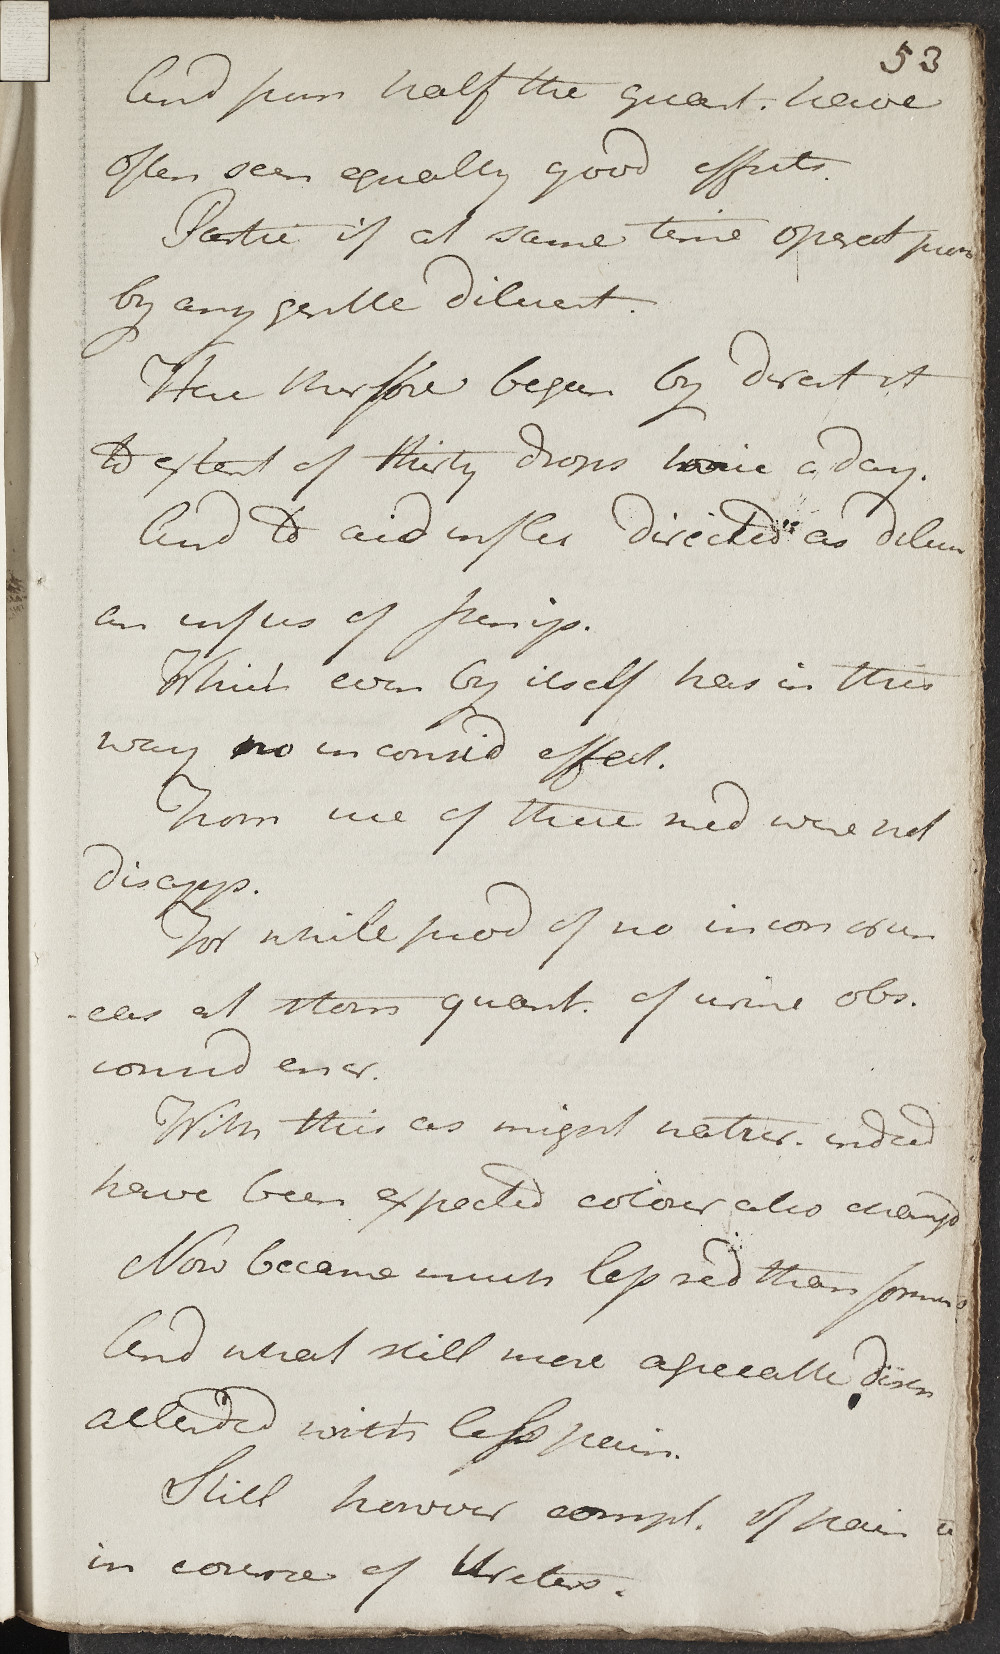 53
And from half the quant. have
often seen equally good effects.
Partic if at same time operat prom
by any gentle diluent.
Here therfore began by direct it
to extent of thirty drops twice a day.
And to aid infl directed as diluen
an infus of Junip.
Which even by itself has in this
way no inconsid effect.
From use of these med were not
disapp.
For while prod of no inconven
-ces at stom quant. of urine obs.
consid encr.
With this as might natur. indeed
have been expected colour also changd
Now became much less red than former
And what still more agreeable disch
attended with less pain.
Still however compl. of pain
in course of Ureters.